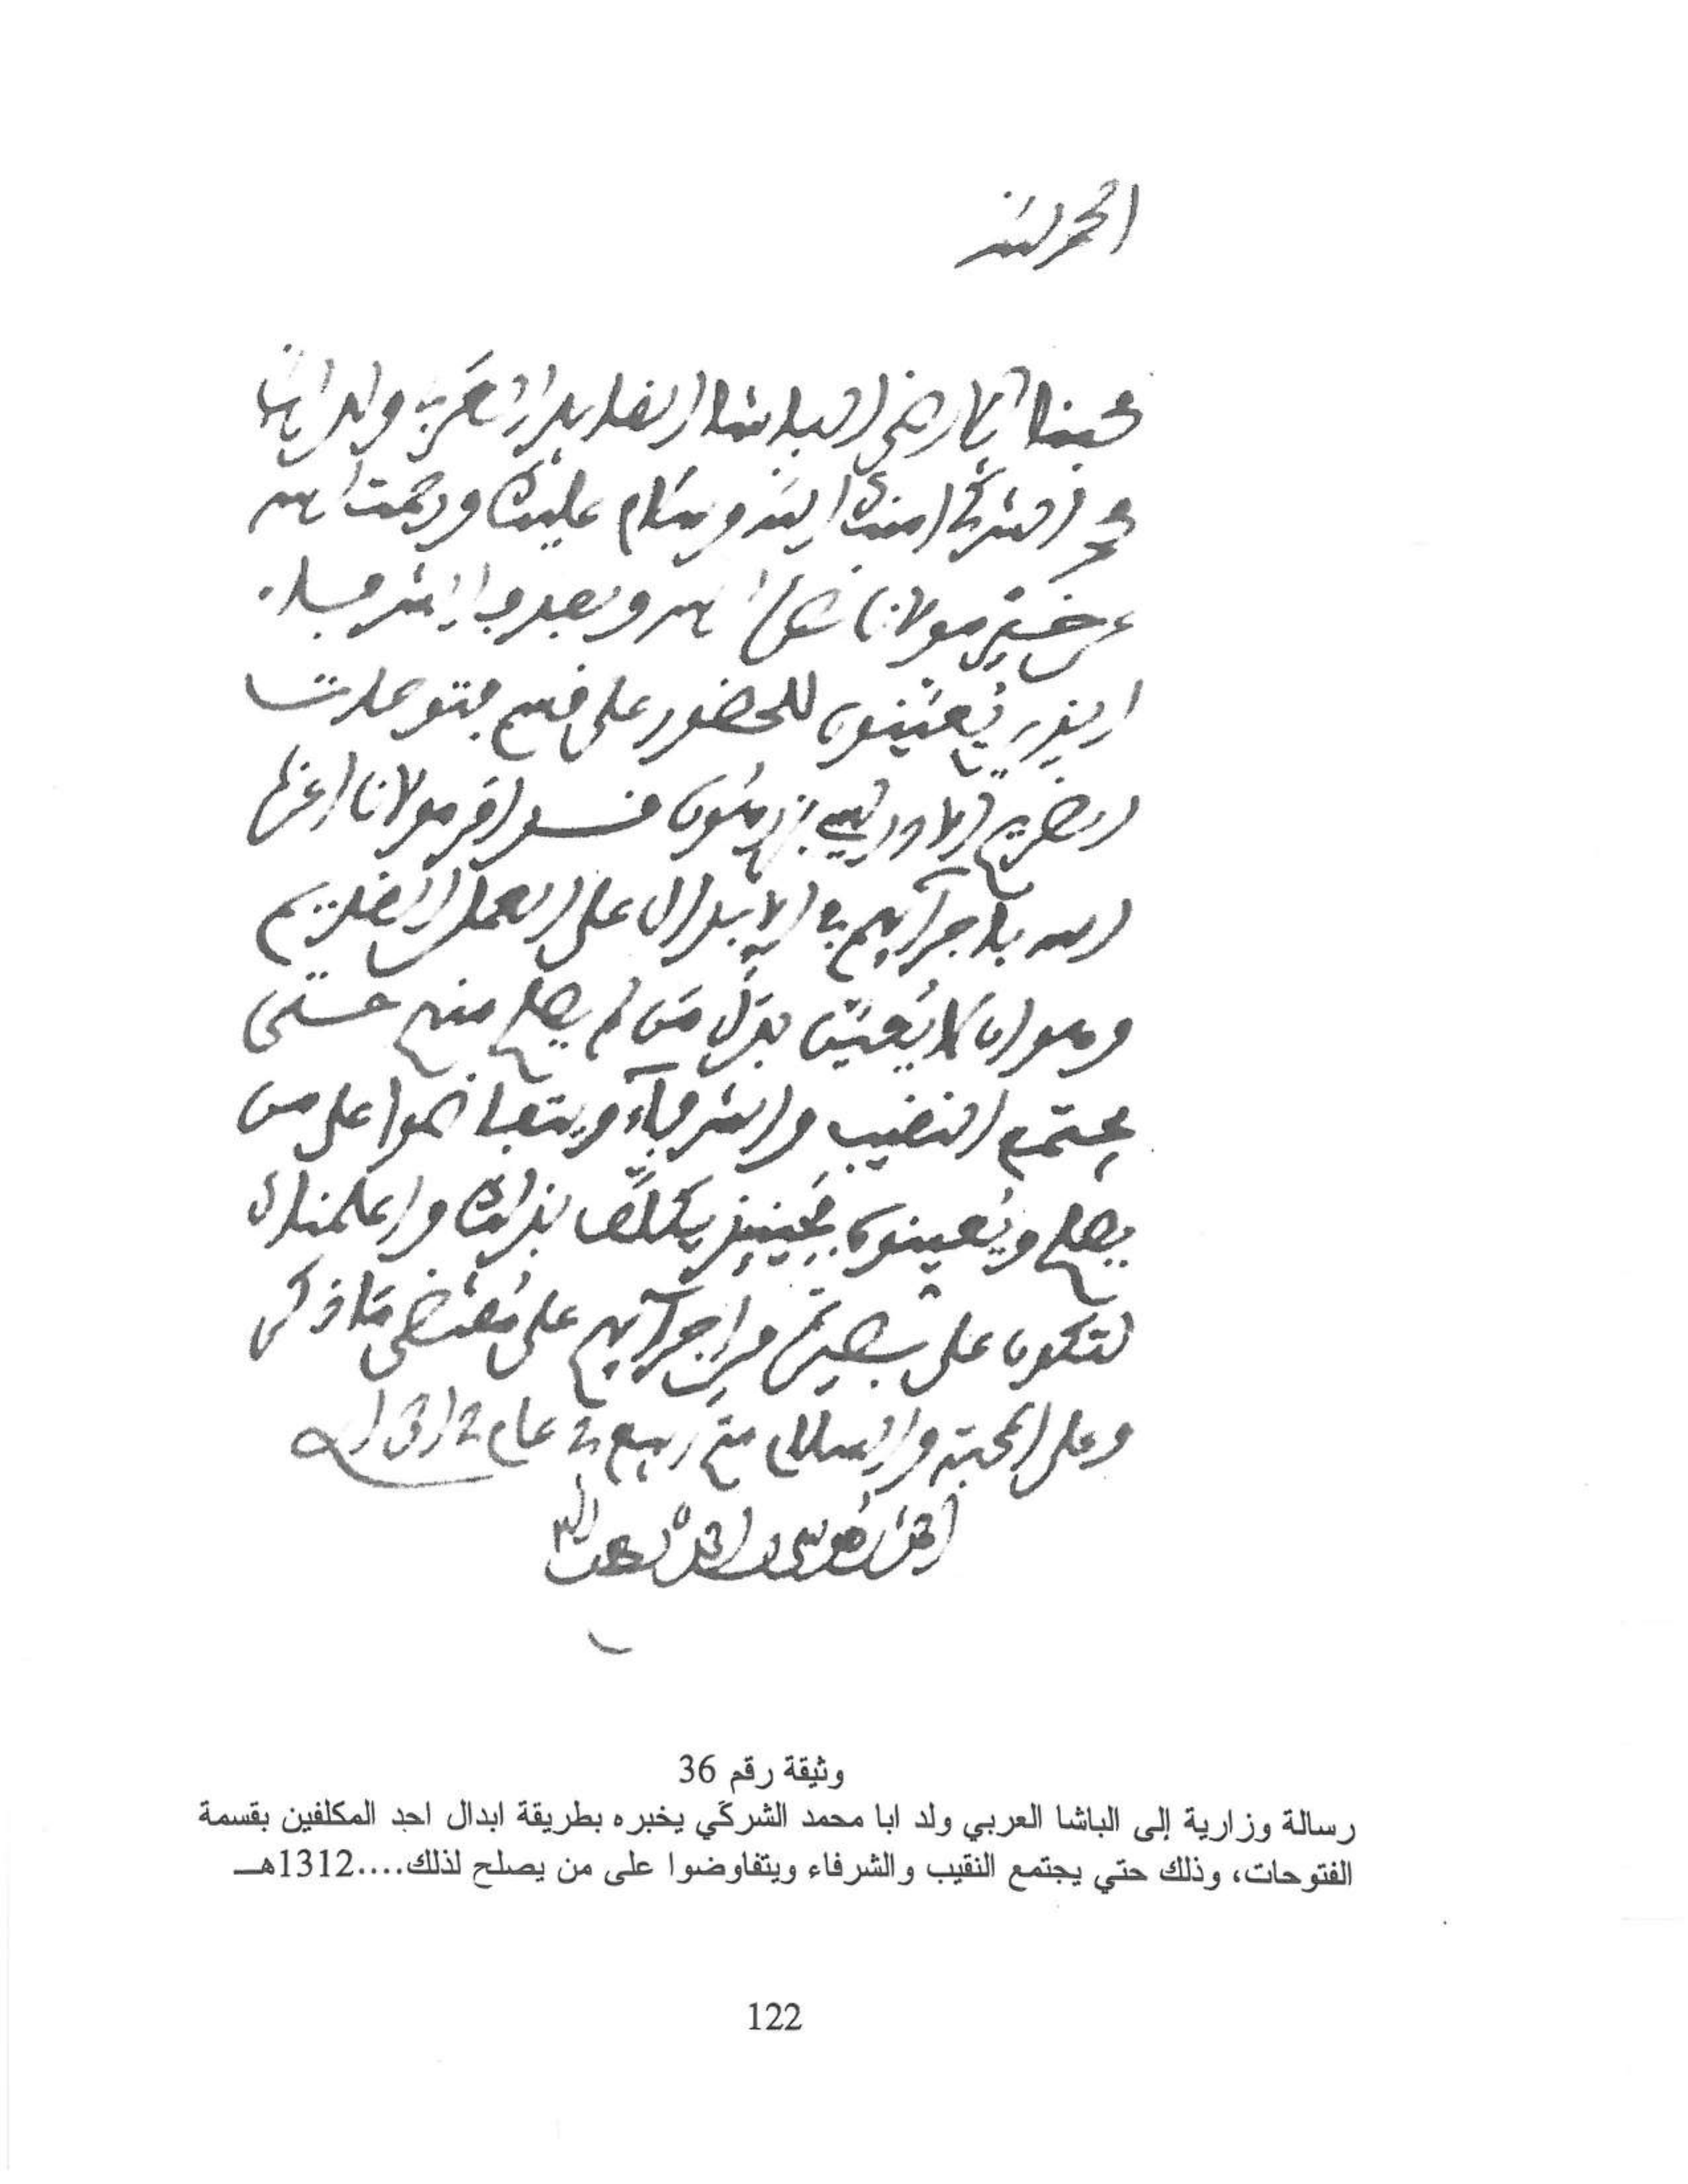 الحمد لله
محبنا الارضى الباشا القايد العربي ولد ابا
محمد الشركي امنك الله وسلام عليك ورحمت الله
عن خير مولانا نصره الله وبعد فالشرفاء
الذين يعينون للحضور على قسم فتوحات
الضريح الادريسي قدس سره امر مولانا اعزه
الله باجرآئهم في الابدال على العمل القديم
وهو ان لا يعين بدل من لم يصلح منهم حتى
يجتمع النقيب والشرفاء ويتفاوضوا على من
يصلح ويعينوه فحينئذ يكلف بذلك واعلمناك
لتكون على بصيرة من اجرآئهم على مقتضى ما ذكر
وعلى المحبة والسلام في ربيع 2 عام 1312
احمد بن موسى بن احمد لطف الله به
وثيقة رقم 36
رسالة وزارية إلى الباشا العربي ولد ابا محمد الشركي يخبره بطريقة ابدال احد المكلفين بقسمة
الفتوحات، وذلك حتي يجتمع النقيب والشرفاء ويتفاوضوا على من يصلح لذلك....1312هـ
122